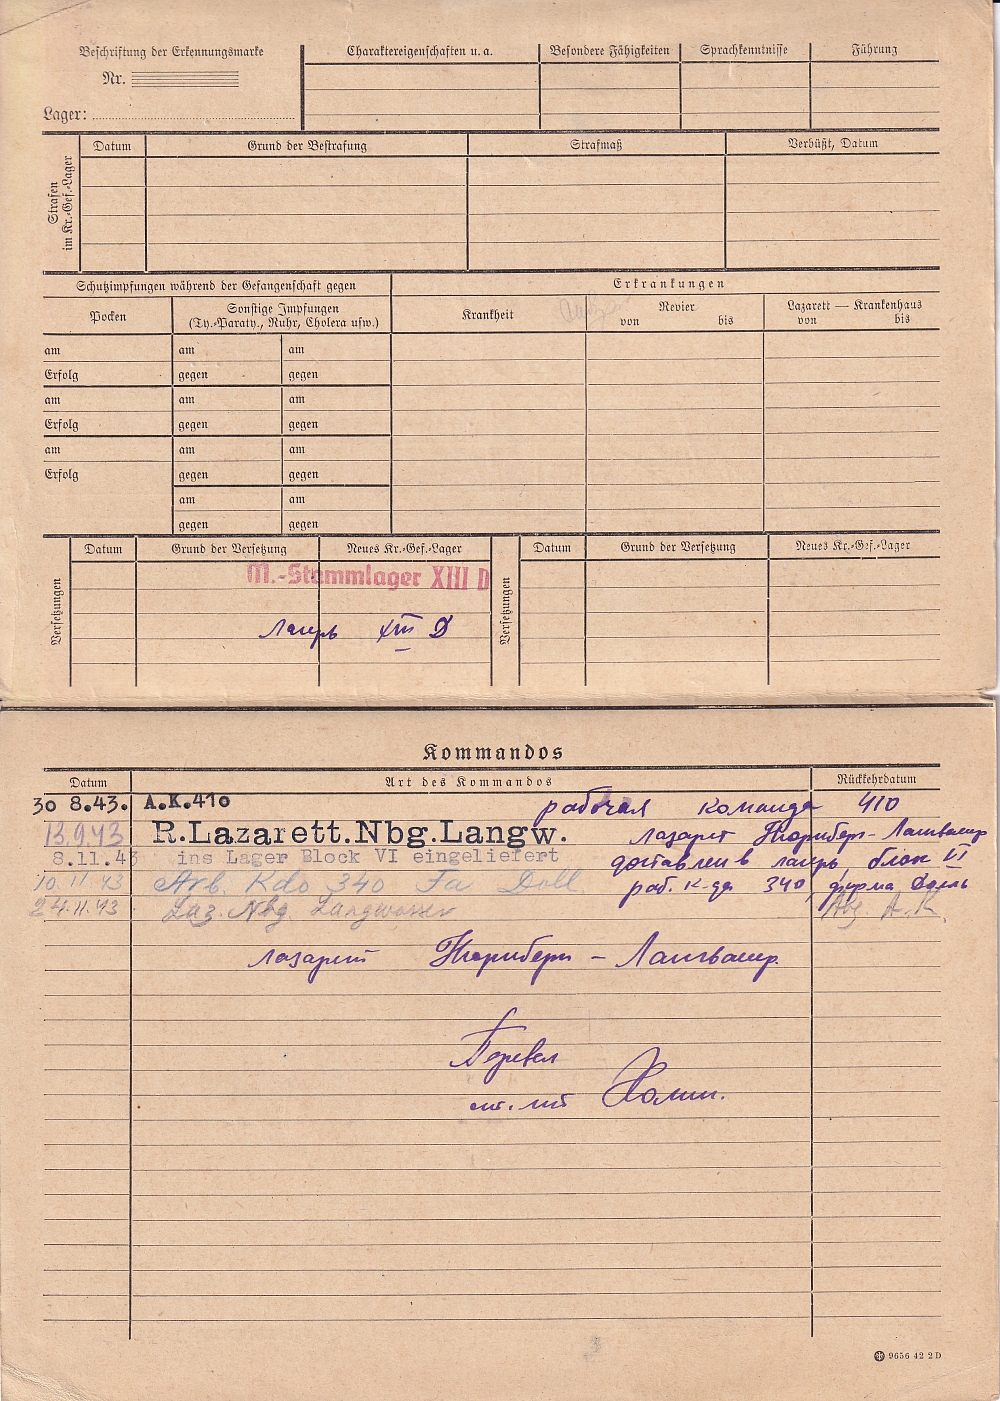 Beschriftung der Erkennungsmarke
Nr.
Lager:
Charaktereigenschaften u. a.
Besondere Fähigkeiten
Sprachkenntnisse
Führung
Strafen im Kr.-Gef.-Lager
Datum
Grund der Bestrafung
Strafmaß
Verbüßt, Datum
Schutzimpfungen während der Gefangenschaft gegen
Erkrankungen
Pocken
Sonstige Impfungen
(Ty.-Paraty., Ruhr, Cholera usw.)
Krankheit
Revier
von bis
Lazarett — Krankenhaus
von bis
am am am
Erfolg gegen gegen
am am am
Erfolg gegen gegen
am am am
Erfolg gegen gegen
am am
gegen gegen
Versetzungen
Datum
Grund der Versetzung
Neues Kr.-Gef.-Lager
Versetzungen
Datum
Grund der Versetzung
Neues Kr.-Gef.-Lager
M.-Stammlager XIII D
Лагерь XIII D
Kommandos
Datum
Art des Kommandos
Rückkehrdatum
30 8.43. A.K.410 рабочая команда 410
13.9.43 R.Lazarett.Nbg.Langw. лазарет Нюрнберг-Лангвассер
8.11.43 ins Lager Block VI eingeliefert доставлен в лагерь, блок VI
10.11.43 Arb. Kdo 340 Fa Doll раб. к-да 340, фирма Долль
24.11.43 Laz. Nbg. Langwasser Abg. A. K.
лазарет Нюрнберг - Лангвассер.
Перевел
мл. лт
9656 42 2 D